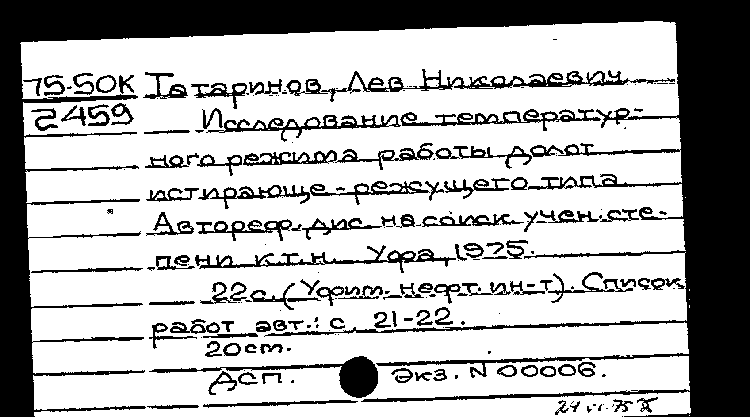 75-50К Татаринов, Лев Николаевич
2459 Исследование температур-
ного режима работы долот
истирающе-режущего типа.
Автореф. дис. на соиск. учен. сте-
пени к.т.н. Уфа, 1975.
22с. (Уфим. нефт. ин-т). Список
работ авт.: с. 21-22.
20см.
ДСП. Экз. N 00006.